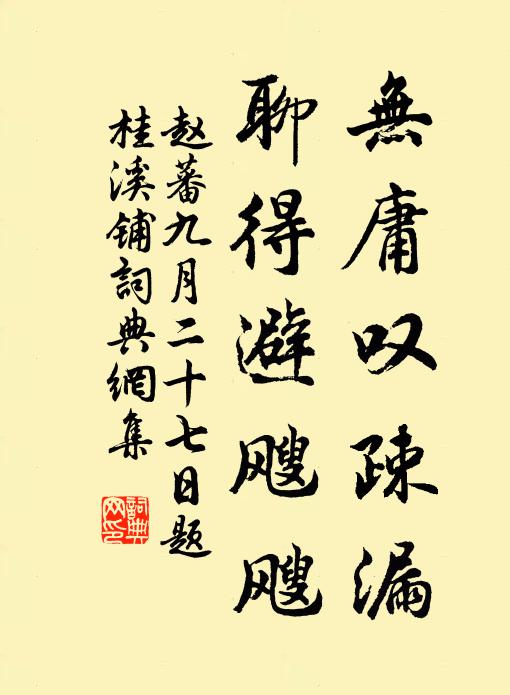 無庸叹疎漏
聊得避颼颼
赵蕃九月二十七日题
桂溪铺詞典網集
詞典
网印